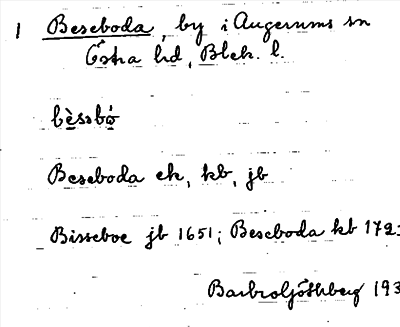 1 Beseboda, by i Augerums sn
Östra hd, Blek. l.
bèssbó
Beseboda ek, kb, jb
Bisseboe jb 1651; Beseboda kb 172
193